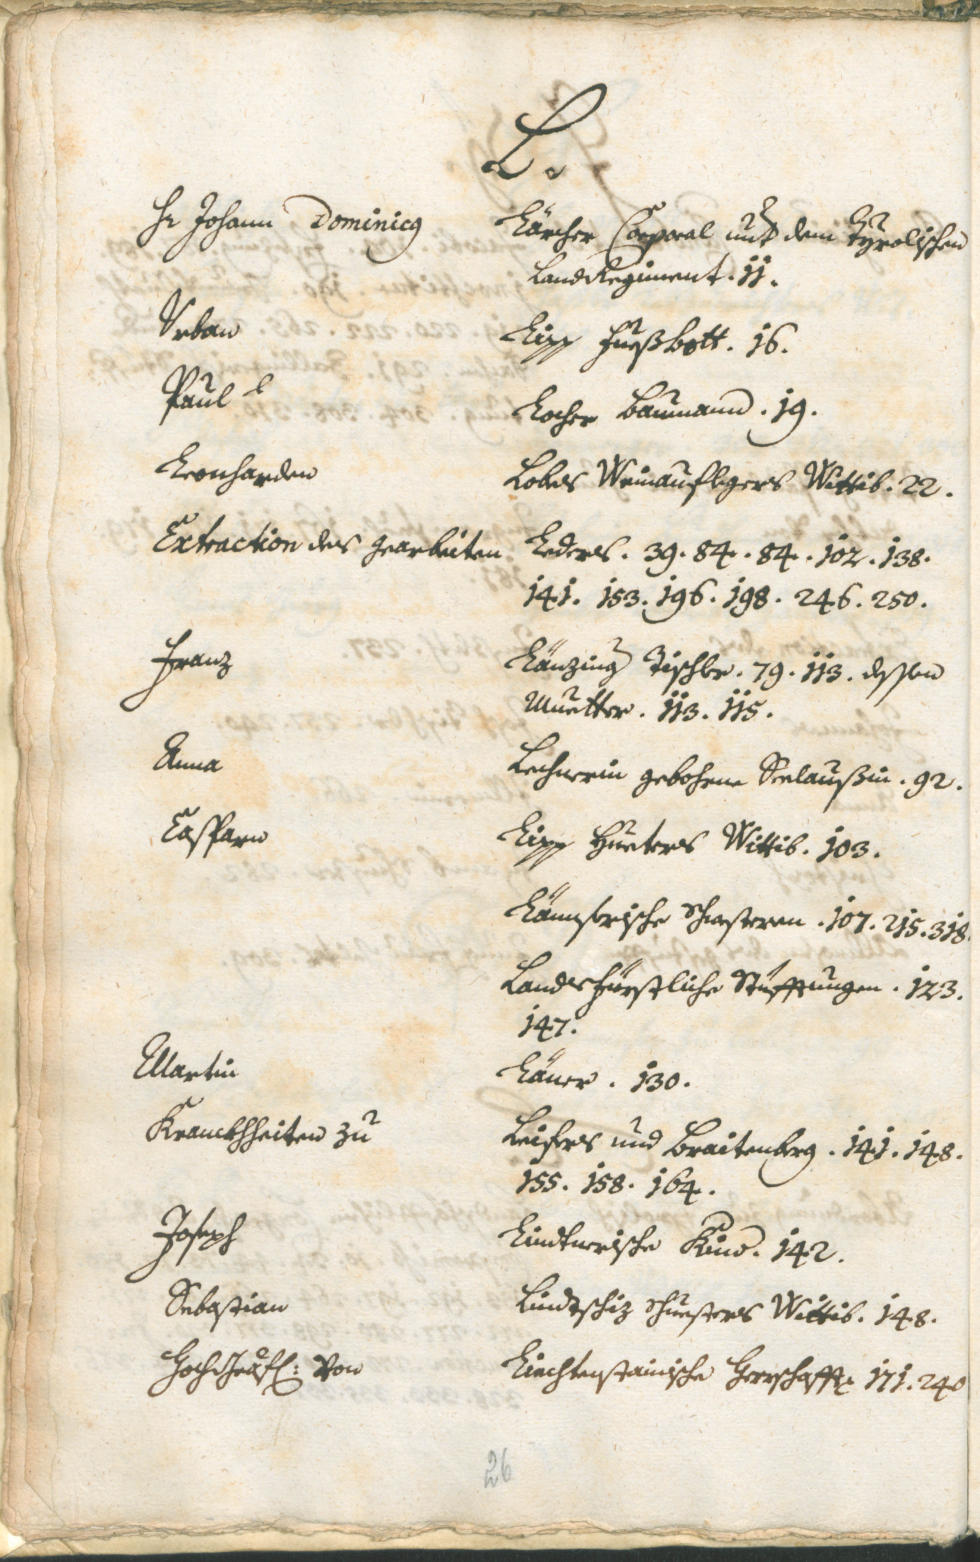 L.
Hr Johann Dominicg Lärcher Corporal unt dem Tyrolischen
LandRegiment. 11.
Urban Lipp Fueßbott. 16.
Paul Locher Baumann. 19.
Leonharden Lobes Weinauflegers Wittib. 22.
Extraction des gearbeiten Leders. 39. 84. 84. 102. 138.
141. 153. 196. 198. 246. 250.
Franz Länzing Tischler. 79. 113. dessen
Muetter. 113. 115.
Anna Lechnerin gebohrne Seelaußin. 92.
Casparn Lipp Hueters Wittib. 103.
107. 215. 318.
Landsfürstliche Stüfftungen. 123.
147.
Martin Läner. 130.
Kranckhheiten zu Leifers und Braitenberg. 141. 148.
155. 158. 164.
Joseph Lindtnerische Kind. 142.
Sebastian Lindtschiz Schuesters Wittib. 148.
Hochgräfl: von Liechtenstainische Herrschafft 171. 240
26